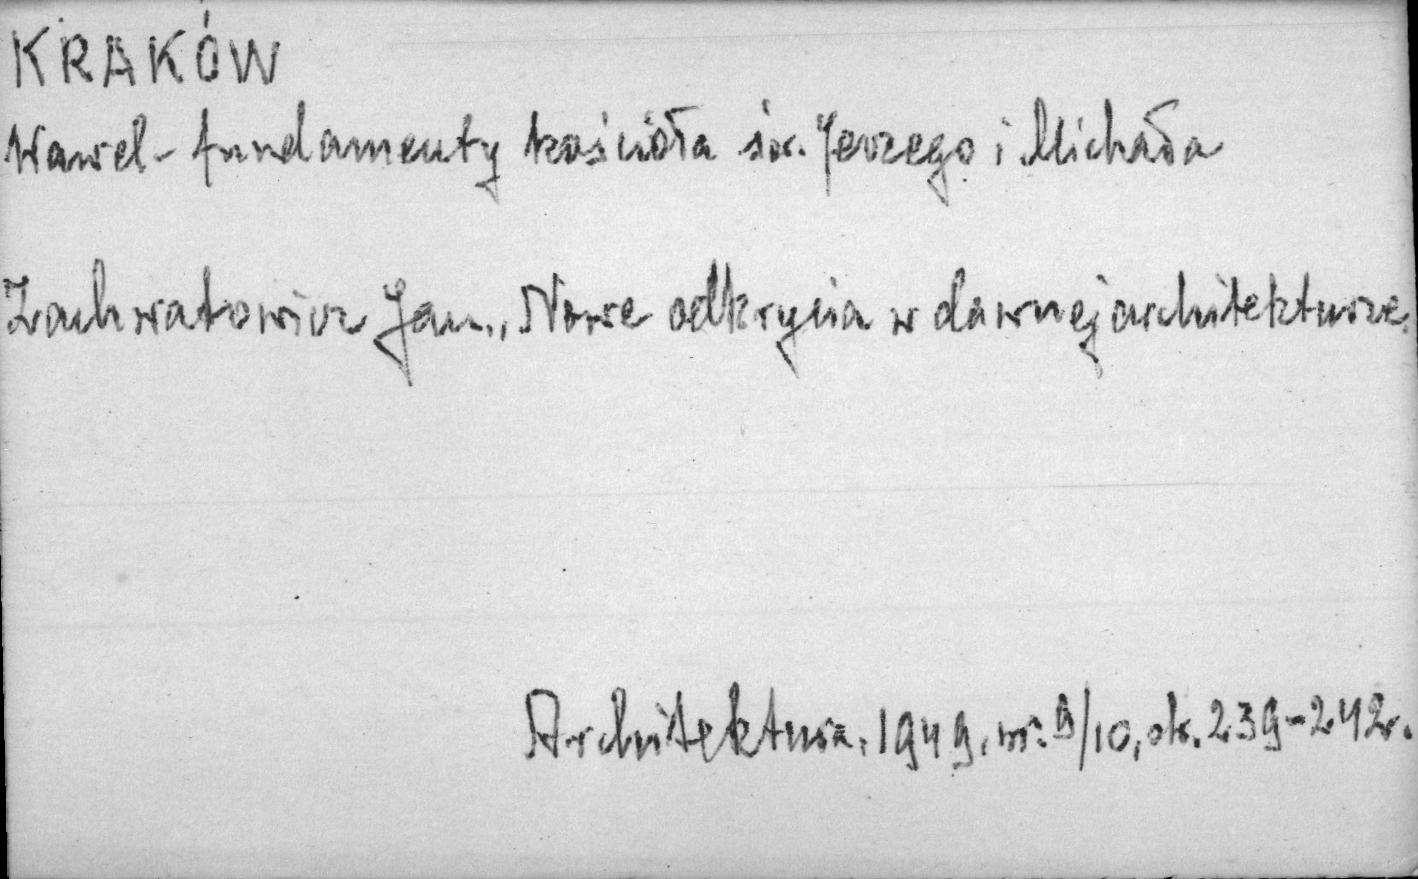 KRAKÓW
Wawel - fundamenty kościoła św. Jerzego i Michała
Zachwatowicz Jan., Nowe odkrycia w dawnej architekturze.
Architektura, 1949, nr. 9/10, str. 239-242.